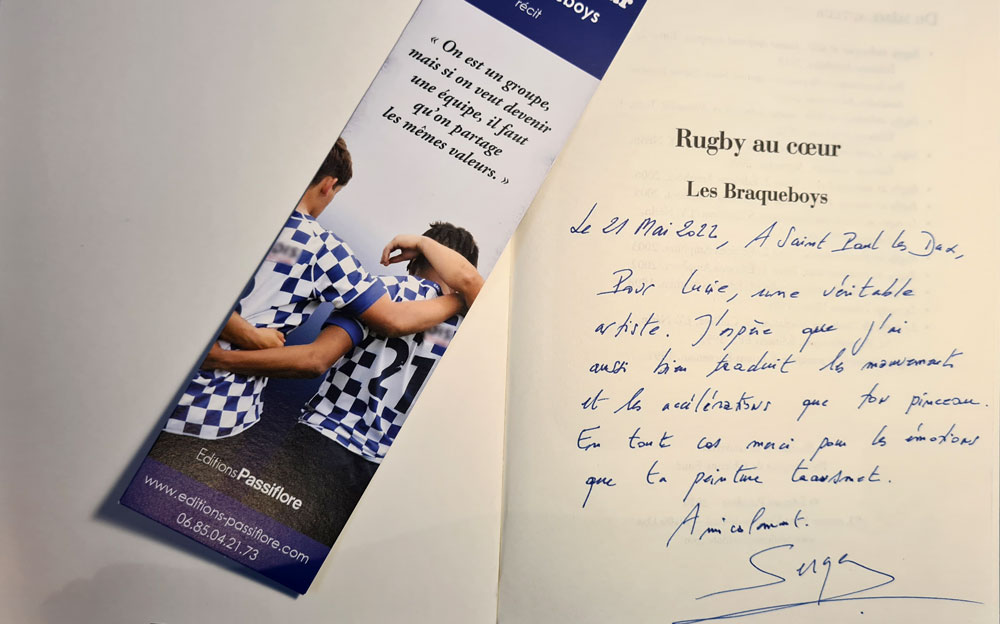 boys
récit
« On est un groupe,
mais si on veut devenir
une équipe, il faut
qu'on partage
les mêmes valeurs. »
21
Editions Passiflore
www.editions-passiflore.com
06.85.04.21.73
Rugby au cœur
Les Braqueboys
Le 21 Mai 2022, A Saint Paul les Dax,
Pour Lucie, une véritable
artiste. J'espère que j'ai
aussi bien traduit les mouvements
et les accélérations que ton pinceau.
En tout cas merci pour les émotions
que ta peinture transmet.
Amicalement.
Serge